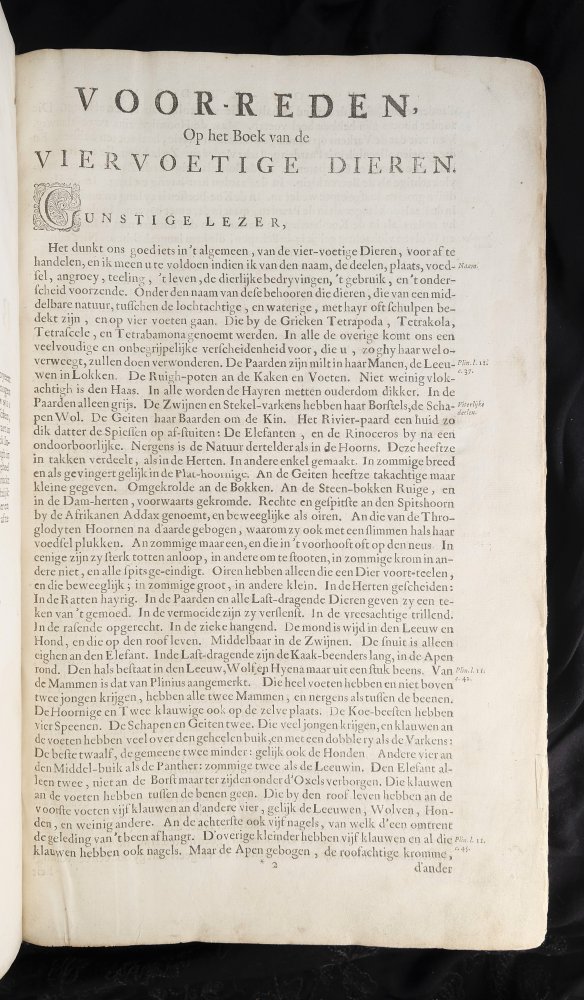 VOOR-REDEN,
Op het Boek van de
VIERVOETIGE DIEREN.
GUNSTIGE LEZER,
Het dunkt ons goed iets in 't algemeen, van de vier-voetige Dieren, voor af te
handelen, en ik meen u te voldoen indien ik van den naam, de deelen, plaats, voed- Naam.
sel, angroey, teeling, 't leven, de dierlijke bedryvingen, 't gebruik, en 't onder-
scheid voorzende. Onder den naam van dese behooren die dieren, die van een mid-
delbare natuur, tusschen de lochtachtige, en waterige, met hayr oft schulpen be-
dekt zijn, en op vier voeten gaan. Die by de Grieken Tetrapoda, Tetrakola,
Tetrascele, en Tetrabamona genoemt werden. In alle de overige komt ons een
veelvoudige en onbegrijpelijke verscheidenheid voor, die u, zo ghy haar wel o-
verweegt, zullen doen verwonderen. De Paarden zijn milt in haar Manen, de Leeu- Plin. l. 11.
wen in Lokken. De Ruigh-poten an de Kaken en Voeten. Niet weinig vlok- c. 37.
achtigh is den Haas. In alle worden de Hayren metten ouderdom dikker. In de
Paarden alleen grijs. De Zwijnen en Stekel-varkens hebben haar Borstels, de Scha- Uiterlijke
pen Wol. De Geiten haar Baarden om de Kin. Het Rivier-paard een huid zo deelen.
dik datter de Spiessen op af-stuiten: De Elefanten, en de Rinoceros by na een
ondoorboorlijke. Nergens is de Natuur dertelder als in de Hoorns. Deze heeftze
in takken verdeelt, als in de Herten. In andere enkel gemaakt. In zommige breed
en als gevingert gelijk in de Plat-hoornige. An de Geiten heeftze takachtige maar
kleine gegeven. Omgekrolde an de Bokken. An de Steen-bokken Ruige, en
in de Dam-herten, voorwaarts gekromde. Rechte en gespitste an den Spitshoorn
by de Afrikanen Addax genoemt, en beweeglijke als oiren. An die van de Thro-
glodyten Hoornen na d'aarde gebogen, waarom zy ook met een slimmen hals haar
voedsel plukken. An zommige maar een, en die in 't voorhooft oft op den neus. In
eenige zijn zy sterk totten anloop, in andere om te stooten, in zommige krom in an-
dere niet, en alle spits ge-eindigt. Oiren hebben alleen die een Dier voort-teelen,
en die beweeglijk; in zommige groot, in andere klein. In de Herten gescheiden:
In de Ratten hayrig. In de Paarden en alle Last-dragende Dieren geven zy een te-
ken van 't gemoed. In de vermoeide zijn zy verslenst. In de vreesachtige trillend.
In de rasende opgerecht. In de zieke hangend. De mond is wijd in den Leeuw en
Hond, en die op den roof leven. Middelbaar in de Zwijnen. De snuit is alleen
eighen an den Elefant. In de Last-dragende zijn de Kaak-beenders lang, in de Apen
rond. Den hals bestaat in den Leeuw, Wolf en Hyena maar uit een stuk beens. Van Plin. l. 11.
de Mammen is dat van Plinius aangemerkt. Die heel voeten hebben en niet boven c. 40.
twee jongen krijgen, hebben alle twee Mammen, en nergens als tussen de beenen.
De Hoornige en Twee klauwige ook op de zelve plaats. De Koe-beesten hebben
vier Speenen. De Schapen en Geiten twee. Die veel jongen krijgen, en klauwen an
de voeten hebben veel over den geheelen buik, en met een dobble ry als de Varkens:
De beste twaalf, de gemeene twee minder: gelijk ook de Honden Andere vier an
den Middel-buik als de Panther: zommige twee als de Leeuwin. Den Elefant al-
leen twee, niet an de Borst maar ter zijden onder d'Oxels verborgen. Die klauwen
an de voeten hebben tussen de benen geen. Die by den roof leven hebben an de
voorste voeten vijf klauwen an d'andere vier, gelijk de Leeuwen, Wolven, Hon-
den, en weinig andere. An de achterste ook vijf nagels, van welk d'een omtrent
de geleding van 't been afhangt. D'overige kleinder hebben vijf klauwen en al die Plin. l. 11.
klauwen hebben ook nagels. Maar de Apen gebogen, de roofachtige kromme, c. 45.
* 2 d'ander